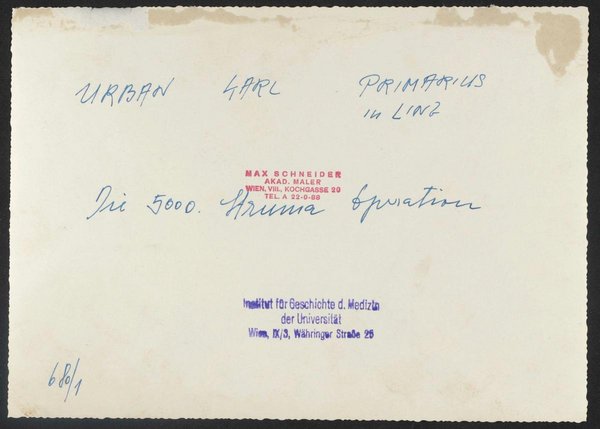 URBAN KARL PRIMARIUS
in LINZ
MAX SCHNEIDER
AKAD. MALER
WIEN, VIII., KOCHGASSE 29
TEL. A 22-0-88
Die 5000. Struma Operation
Institut für Geschichte d. Medizin
der Universität
Wien, IX/3, Währinger Straße 25
680/1